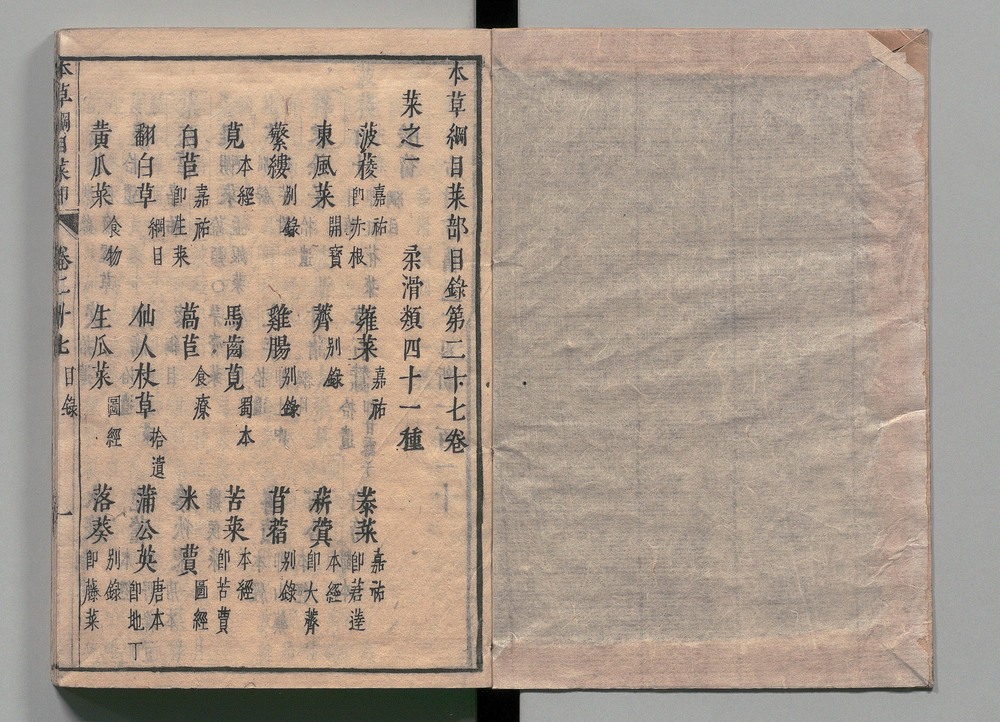 本草綱目菜部目錄第二十七卷
菜之一　柔滑類四十一種
菠薐嘉祐即赤根　蕹菜嘉祐　菾菜嘉祐即莙薘
東風菜開寶　薺別錄　菥蓂本經即大薺
繁縷別錄　雞腸別錄　苜蓿別錄
莧本經　馬齒莧蜀本　苦菜本經即苦蕒
白苣嘉祐即生菜　萵苣食療　水蕒圖經
翻白草綱目　仙人杖草拾遺　蒲公英唐本即地丁
黃瓜菜食物　生瓜菜圖經　落葵別錄即藤菜
本草綱目菜部　卷二十七目錄　一